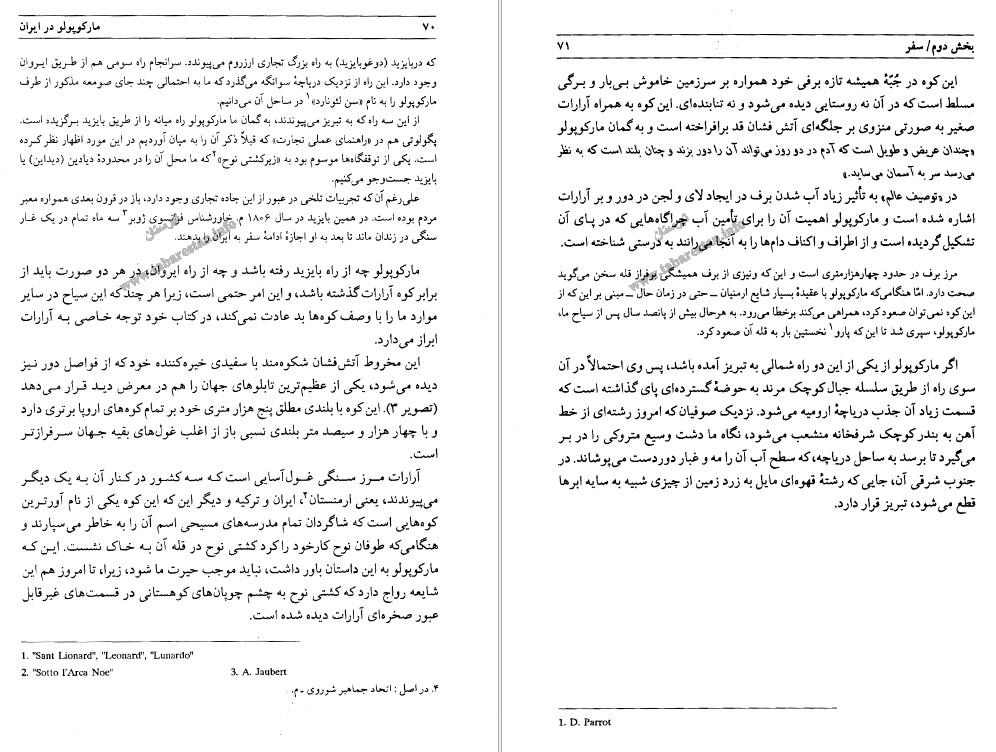 ۷۰
مارکوپولو در ایران
که دربایزید (دوغوبایزید) به راه بزرگ تجاری ارزروم می‌پیوندد. سرانجام راه سومی هم از طریق ایروان
وجود دارد. این راه از نزدیک دریاچهٔ سوانگه می‌گذرد که ما به احتمالی چند جای صومعه مذکور از طرف
مارکوپولو را به نام «سن لئونارد»۱ در ساحل آن می‌دانیم.
از این سه راه که به تبریز می‌پیوندند، به گمان ما مارکوپولو راه میانه را از طریق بایزید برگزیده است.
پگولوتی هم در «راهنمای عملی تجارت» که قبلاً ذکر آن را به میان آوردیم در این مورد اظهار نظر کرده
است. یکی از توقفگاه‌ها موسوم بود به «زیرکشتی نوح»۲ که ما محل آن را در محدودهٔ دیادین (دیداین) یا
بایزید جست‌وجو می‌کنیم.
علی‌رغم آن که تجربیات تلخی در عبور از این جاده تجاری وجود دارد، باز در قرون بعدی همواره معبر
مردم بوده است. در همین بایزید در سال ۱۸۰۶ م. خاورشناس فرانسوی ژوبر۳ سه ماه تمام در یک غار
سنگی در زندان ماند تا بعد به او اجازهٔ ادامهٔ سفر به ایران را بدهند.
مارکوپولو چه از راه بایزید رفته باشد و چه از راه ایروان، در هر دو صورت باید از
برابر کوه آرارات گذشته باشد، و این امر حتمی است، زیرا هر چند که این سیاح در سایر
موارد ما را با وصف کوه‌ها بد عادت نمی‌کند، در کتاب خود توجه خاصی به آرارات
ابراز می‌دارد.
این مخروط آتش‌فشان شکوه‌مند با سفیدی خیره‌کننده خود که از فواصل دور نیز
دیده می‌شود، یکی از عظیم‌ترین تابلوهای جهان را هم در معرض دید قرار می‌دهد
(تصویر ۳). این کوه با بلندی مطلق پنج هزار متری خود بر تمام کوه‌های اروپا برتری دارد
و با چهار هزار و سیصد متر بلندی نسبی باز از اغلب غول‌های بقیه جهان سرفرازتر
است.
آرارات مرز سنگی غول‌آسایی است که سه کشور در کنار آن به یک دیگر
می‌پیوندند، یعنی ارمنستان۴، ایران و ترکیه و دیگر این که این کوه یکی از نام آورترین
کوه‌هایی است که شاگردان تمام مدرسه‌های مسیحی اسم آن را به خاطر می‌سپارند و
هنگامی‌که طوفان نوح کارخود را کرد کشتی نوح در قله آن به خاک نشست. این که
مارکوپولو به این داستان باور داشت، نباید موجب حیرت ما شود، زیرا، تا امروز هم این
شایعه رواج دارد که کشتی نوح به چشم چوپان‌های کوهستانی در قسمت‌های غیرقابل
عبور صخره‌ای آرارات دیده شده است.
1. "Sant Lionard", "Leonard", "Lunardo"
2. "Sotto l'Arca Noe" 3. A. Jaubert
۴. در اصل : اتحاد جماهیر شوروی ـ م.
بخش دوم/ سفر
۷۱
این کوه در جُبّهٔ همیشه تازه برفی خود همواره بر سرزمین خاموش بی‌بار و برگی
مسلط است که در آن نه روستایی دیده می‌شود و نه تنابنده‌ای. این کوه به همراه آرارات
صغیر به صورتی منزوی بر جلگه‌ای آتش فشان قد برافراخته است و به گمان مارکوپولو
«چندان عریض و طویل است که آدم در دو روز می‌تواند آن را دور بزند و چنان بلند است که به نظر
می‌رسد سر به آسمان می‌ساید.»
در «توصیف عالم» به تأثیر زیاد آب شدن برف در ایجاد لای و لجن در دور و بر آرارات
اشاره شده است و مارکوپولو اهمیت آن را برای تأمین آب چراگاه‌هایی که در پای آن
تشکیل گردیده است و از اطراف و اکناف دام‌ها را به آنجا می‌رانند به درستی شناخته است.
مرز برف در حدود چهارهزارمتری است و این که ونیزی از برف همیشگی برفراز قله سخن می‌گوید
صحت دارد. امّا هنگامی‌که مارکوپولو با عقیدهٔ بسیار شایع ارمنیان ــ حتی در زمان حال ــ مبنی بر این که از
این کوه نمی‌توان صعود کرد، همراهی می‌کند برخطا می‌رود. به هرحال بیش از پانصد سال پس از سیاح ما،
مارکوپولو، سپری شد تا این که پارو۱ نخستین بار به قله آن صعود کرد.
اگر مارکوپولو از یکی از این دو راه شمالی به تبریز آمده باشد، پس وی احتمالاً در آن
سوی راه از طریق سلسله جبال کوچک مرند به حوضهٔ گسترده‌ای پای گذاشته است که
قسمت زیاد آن جذب دریاچهٔ ارومیه می‌شود. نزدیک صوفیان که امروز رشته‌ای از خط
آهن به بندر کوچک شرفخانه منشعب می‌شود، نگاه ما دشت وسیع متروکی را در بر
می‌گیرد تا برسد به ساحل دریاچه، که سطح آب آن را مه و غبار دوردست می‌پوشاند. در
جنوب شرقی آن، جایی که رشتهٔ قهوه‌ای مایل به زرد زمین از چیزی شبیه به سایه ابرها
قطع می‌شود، تبریز قرار دارد.
1. D. Parrot